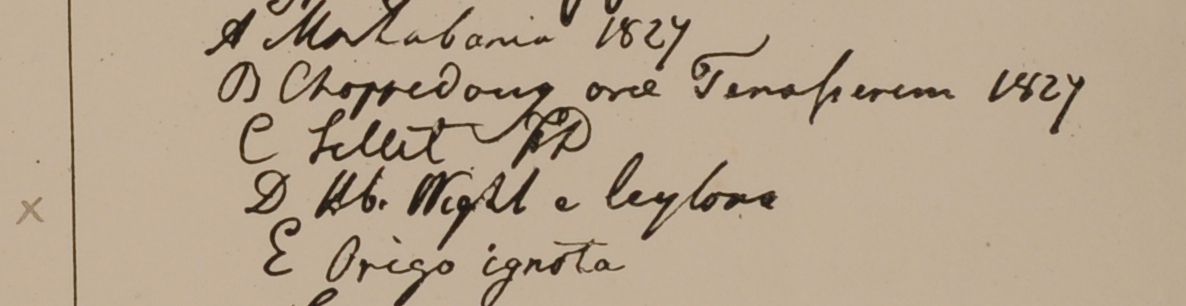 A Martabania 1827
B Choppedong oræ Tenasserem 1827
C Sillet FD
D Hb. Wight e Ceylona
E Origo ignota